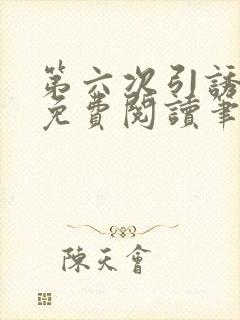 第六次引誘
免費閱讀筆
陳天會